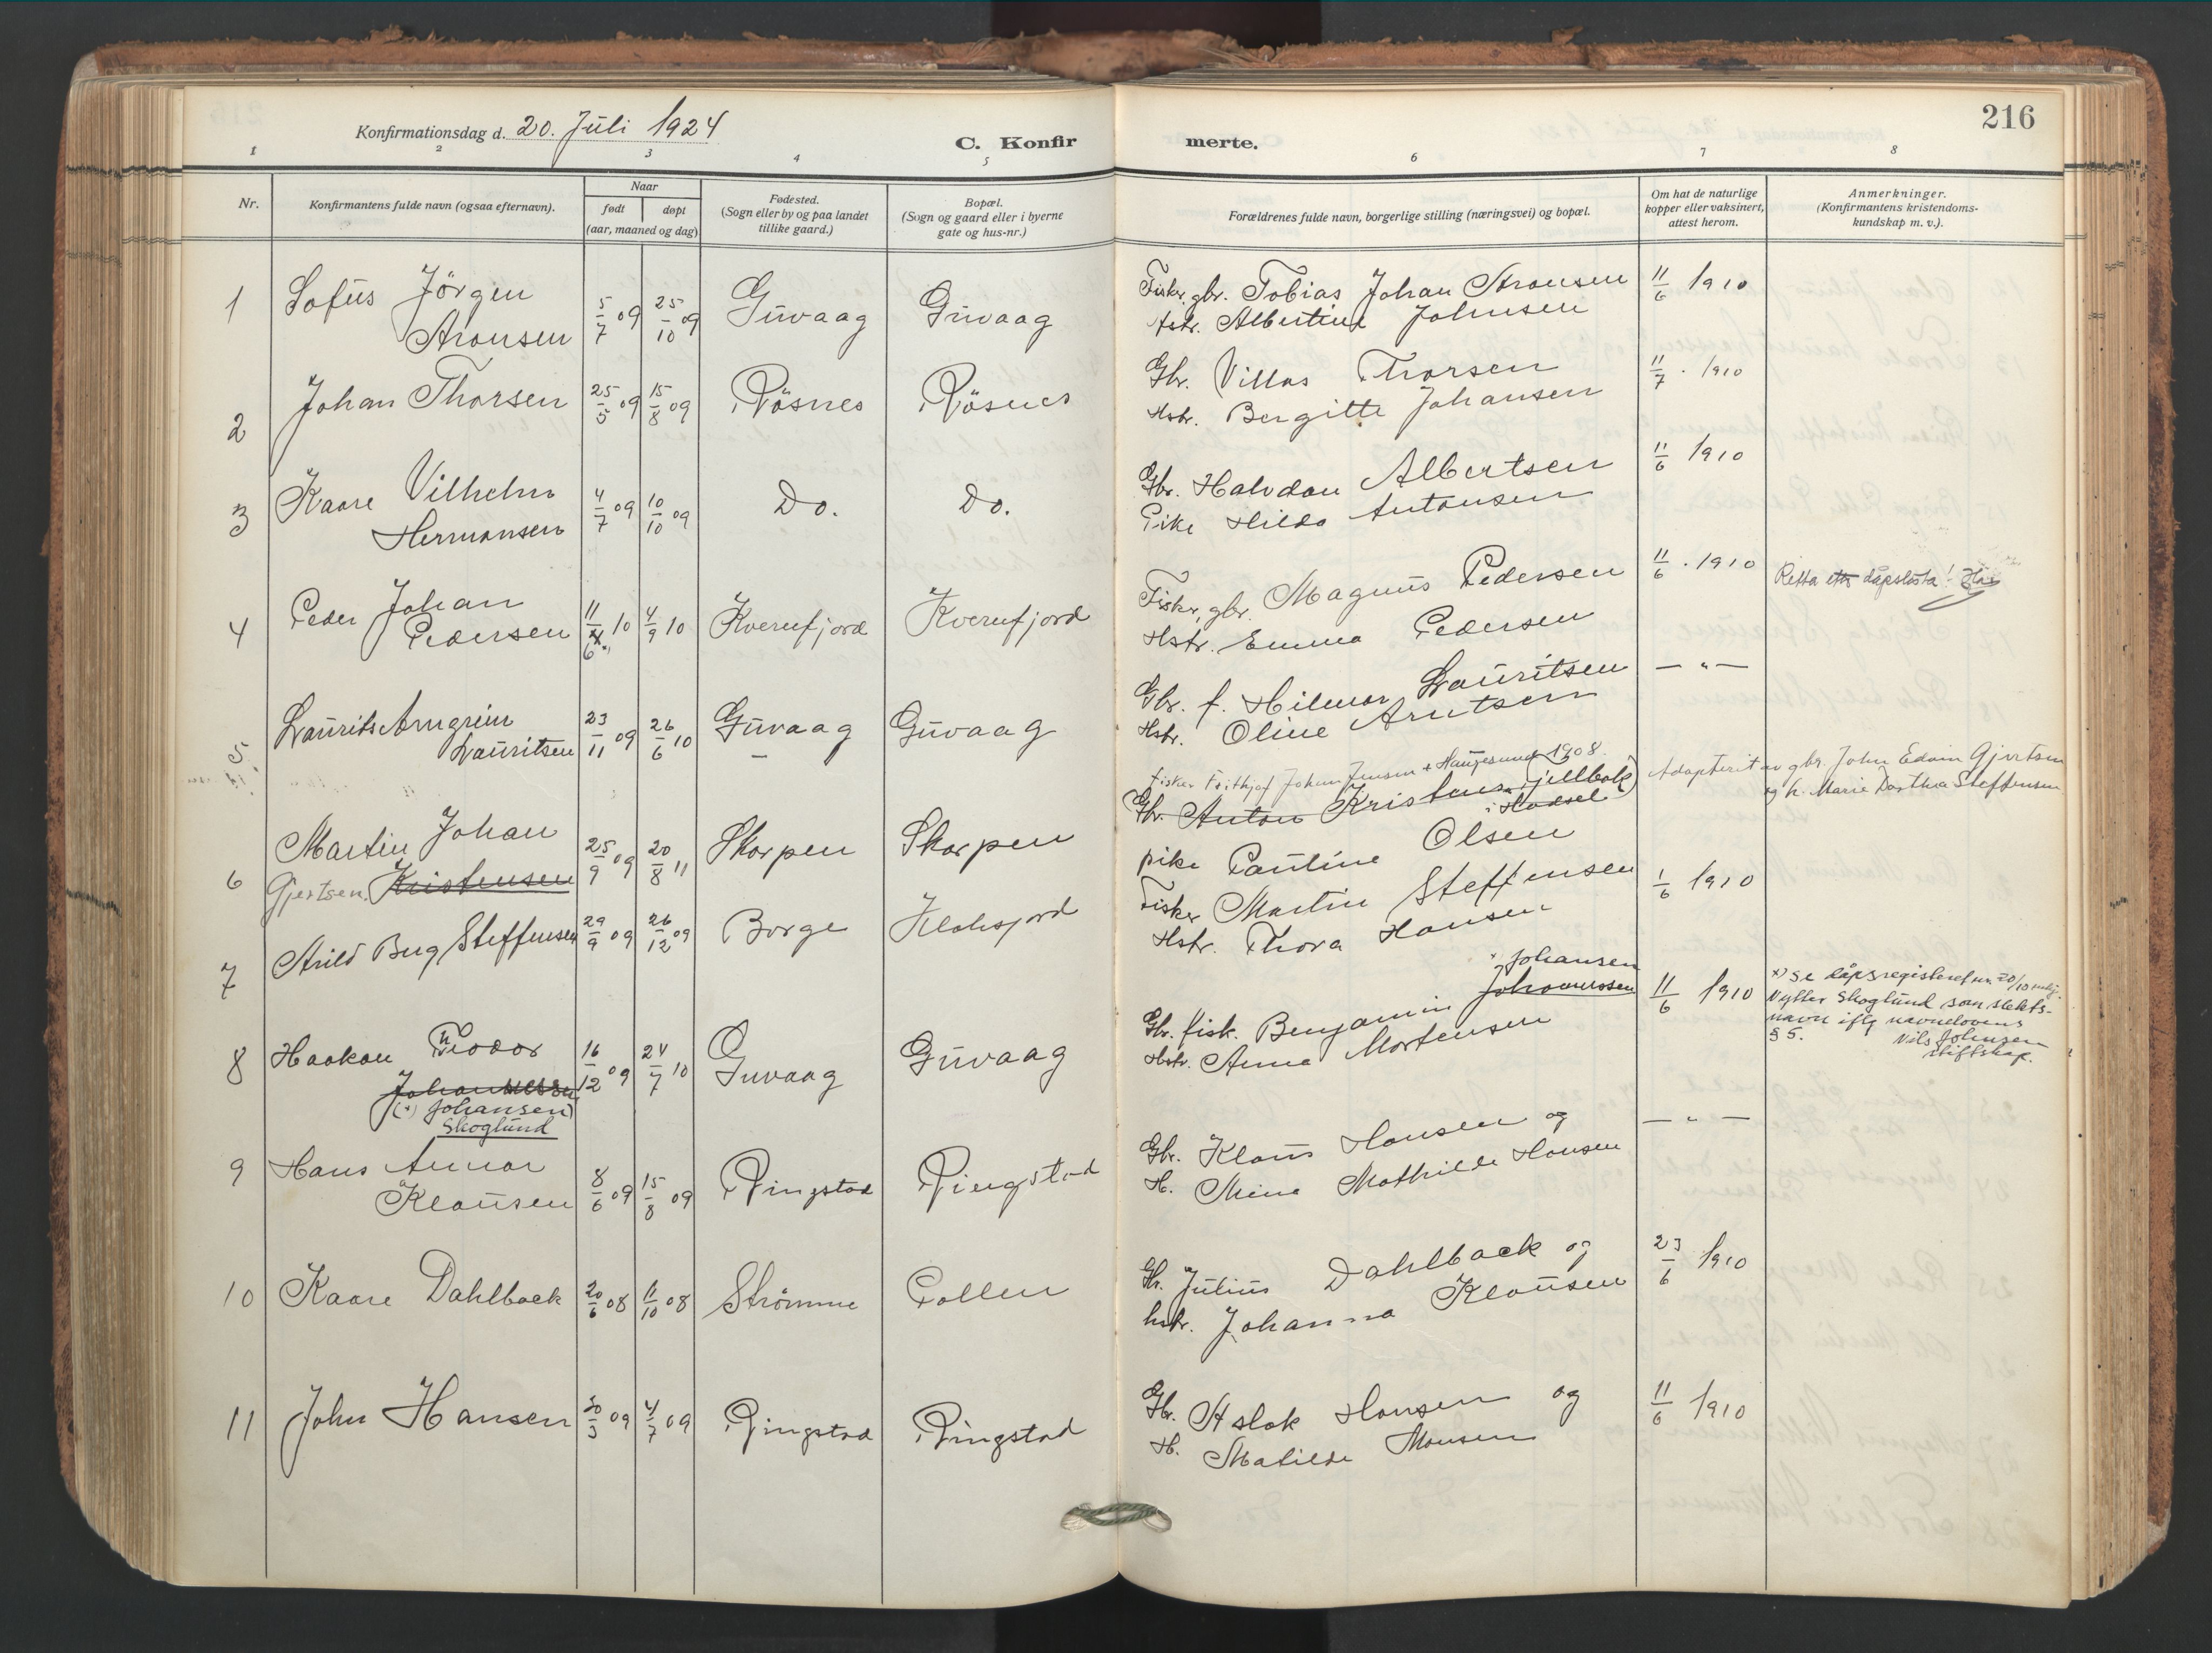 216
Konfirmationsdag d. 20. Juli 1924
C. Konfirmerte.
1 2 3 4 5 6 7 8
Nr.
Konfirmantens fulde navn (ogsaa efternavn).
Naar
født døpt
(aar, maaned og dag)
Fødested.
(Sogn eller by og paa landet
tillike gaard.)
Bopæl.
(Sogn og gaard eller i byerne
gate og hus-nr.)
Forældrenes fulde navn, borgerlige stilling (næringsvei) og bopæl.
Om hat de naturlige
kopper eller vaksinert,
attest herom.
Anmerkninger.
(Konfirmantens kristendoms-
kundskap m. v.).
1 Sofus Jörgen
Aronsen
5/7 09 25/10 09 Guvaag Guvaag
Fisker, gbr. Tobias Johan Aronsen
hstr. Albertine Johnsen
11/6 1910
2 Johan Thorsen
25/5 09 15/8 09 Rösnes Rösnes
Gbr. Villas Thorsen
Hstr. Bergitte Johansen
11/7 . 1910
3 Kaare Vilhelm
Hermansen
4/7 09 10/10 09 Do. Do.
Gbr. Halvdan Albertsen
Pike Hilda Antonsen
11/6 1910
4 Peder Johan
Pedersen
11/6 10 4/9 10 Kvernfjord Kvernfjord
Fisker, gbr. Magnus Pedersen
Hstr. Emma Pedersen
11/6 . 1910
Retta etter dåpslista!
5 Laurits Arngrim
Lauritsen
23/11 09 26/6 10 Guvaag Guvaag
Gbr. f. Hilmar Lauritsen
Hstr. Oline Arntsen
— " —
6 Martin Johan
Gjertsen. Kristensen
25/9 09 20/8 11 Skorpen Skorpen
fisker Frithjof Johan Jensen + Haugesund 1908.
Gbr. Anton Kristensen
i Hadsel
pike Pauline Olsen
Adopterit av gbr. John Edvin Gjertsen
og h. Marie Dorthea Steffensen
7 Arild Berg Steffensen
29/9 09 26/12 09 Borge
Fisker Martin Steffensen
Hstr. Thora Hansen
1/6 1910
8 Haakon Theodor
Johannessen
(x) Johansen)
Skoglund
16/12 09 24/7 10 Guvaag Guvaag
x Johansen
Gbr. fisk. Benjamin Johannessen
Hstr. Anna Mortensen
11/6 1910
x) Se dåpsregisteret nr. 20/10
Nytter Skoglund som slekts-
navn iflg navnelovens
§ 5. Nils Johnsen
stiftskap.
9 Hans Annar
Klausen
8/6 09 15/8 09 Ringstad Ringstad
Gbr. Klaus Hansen og
H. Mina Mathilde Hansen
— " —
10 Kaare Dahlback
20/6 08 11/10 08 Strömme Pollen
Gbr. Julius Dahlback og
hstr. Johanna Klausen
23/6 1910
11 John Hansen
30/3 09 4/7 09 Ringstad Ringstad
Gbr. Aslak Hansen og
H. Matilde Monsen
11/6 1910